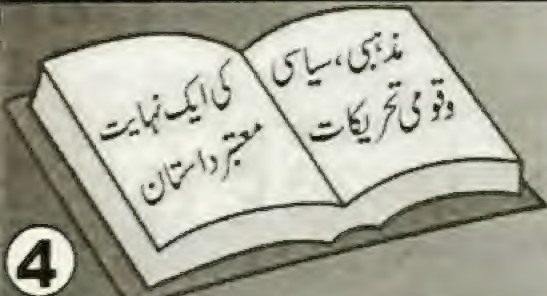 مذہبی، سیاسی
وقومی تحریکات
کی ایک نہایت
معتبر داستان
4